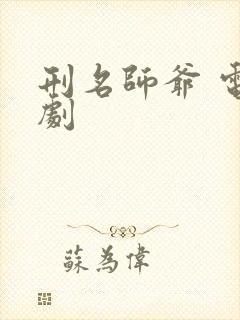 刑名師爺
劇
蘇為偉